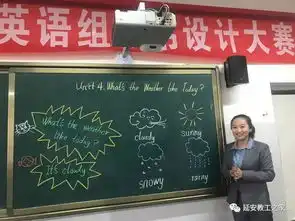 英语组 的设计大赛
Unit 4. What's the Weather like Today?
What's the weather
like today?
It's cloudy
cloudy
sunny
snowy
rainy
延安教工之家